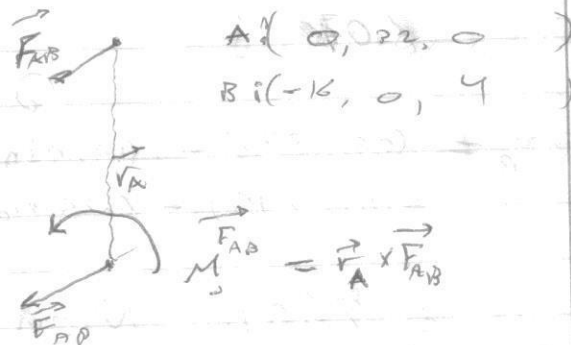 F_AB
A: ( 0, 32, 0 )
B: (-16, 0, 4
r_A
M_o^F_AB = r_A × F_AB
F_AB